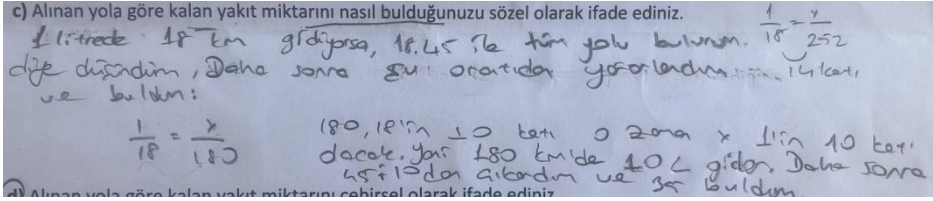 c) Alınan yola göre kalan yakıt miktarını nasıl bulduğunuzu sözel olarak ifade ediniz.
1/18 = x/252
1 litrede 18 km gidiyorsa, 18.45 ile tüm yolu bulurum.
diye düşündüm, Daha sonra şu orantıdan yararlandım 14 katı,
ve buldum:
1/18 = x/180
180, 18'in 10 katı o zama x 1'in 10 katı
olacak. Yani 180 km'de 10 L gider. Daha sonra
45'i 10 dan çıkardım ve 35 buldum
d) Alınan yola göre kalan yakıt miktarını cebirsel olarak ifade ediniz